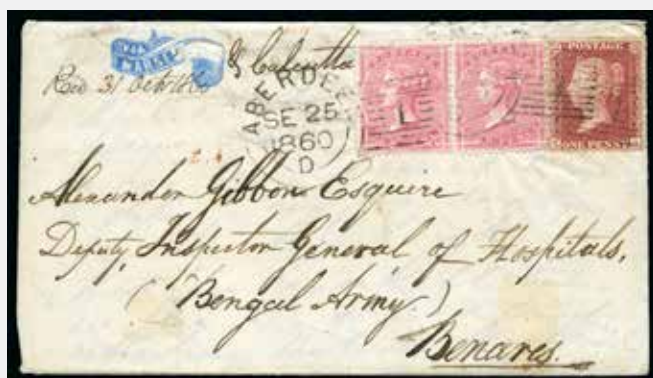 & Calcutta
Recd 31 Oct 1860
ABERDEEN
SE 25
1860
D
1
POSTAGE
ONE PENNY
Alexander Gibbon Esquire
Deputy Inspector General of Hospitals,
(Bengal Army.)
Benares.